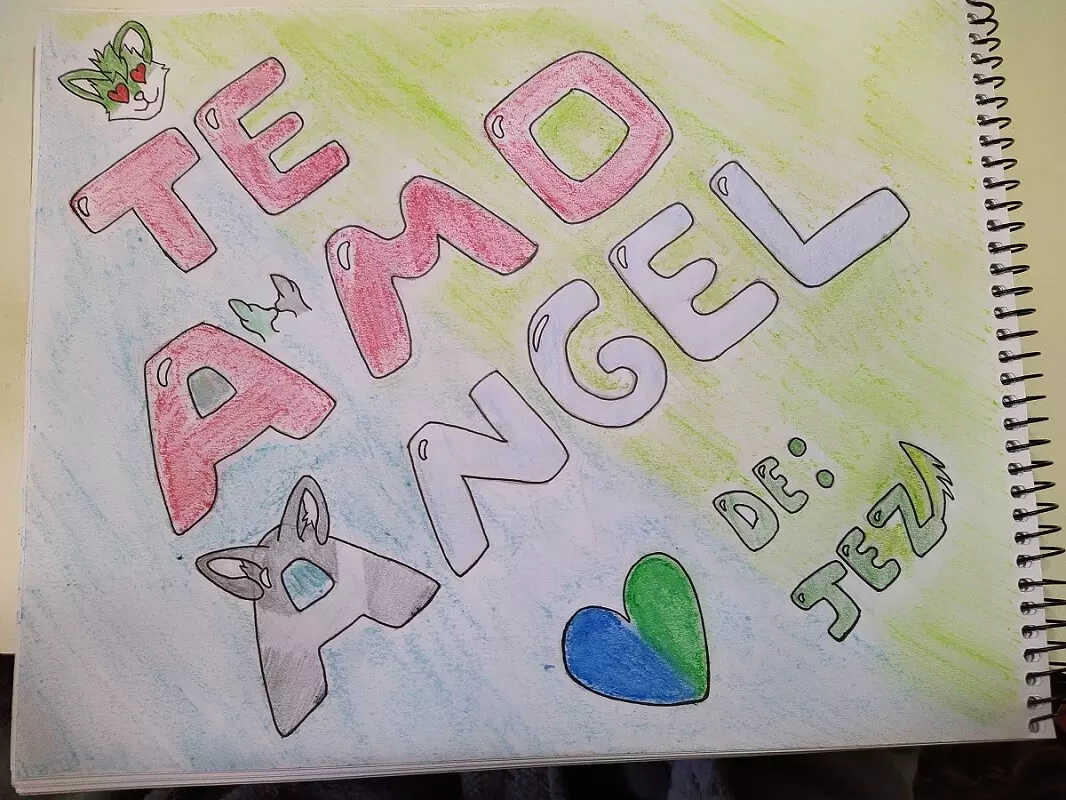 TE AMO
ANGEL
DE:
JEZ